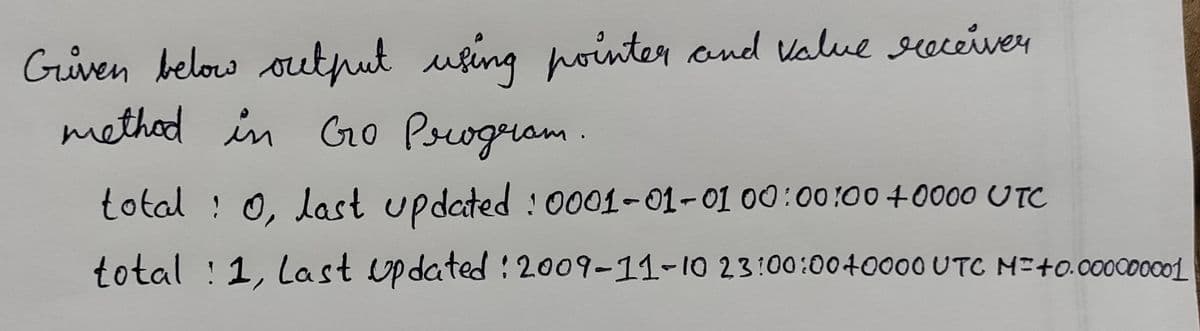 Given below output using pointer and value receiver
method in GO Program.
total : 0, last updated : 0001-01-01 00:00:00 +0000 UTC
total : 1, last updated : 2009-11-10 23:00:00 +0000 UTC M=+0.000000001